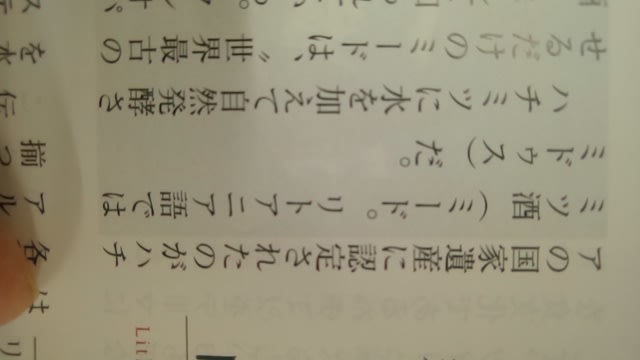 アの国家遺産に認定されたのがハチ
ミツ酒（ミード。リトアニア語では
ミドゥス）だ。
ハチミツに水を加えて自然発酵さ
せるだけのミードは、〝世界最古の
Lit
リ
は
各
アル
揃っ
伝
を水
ステ